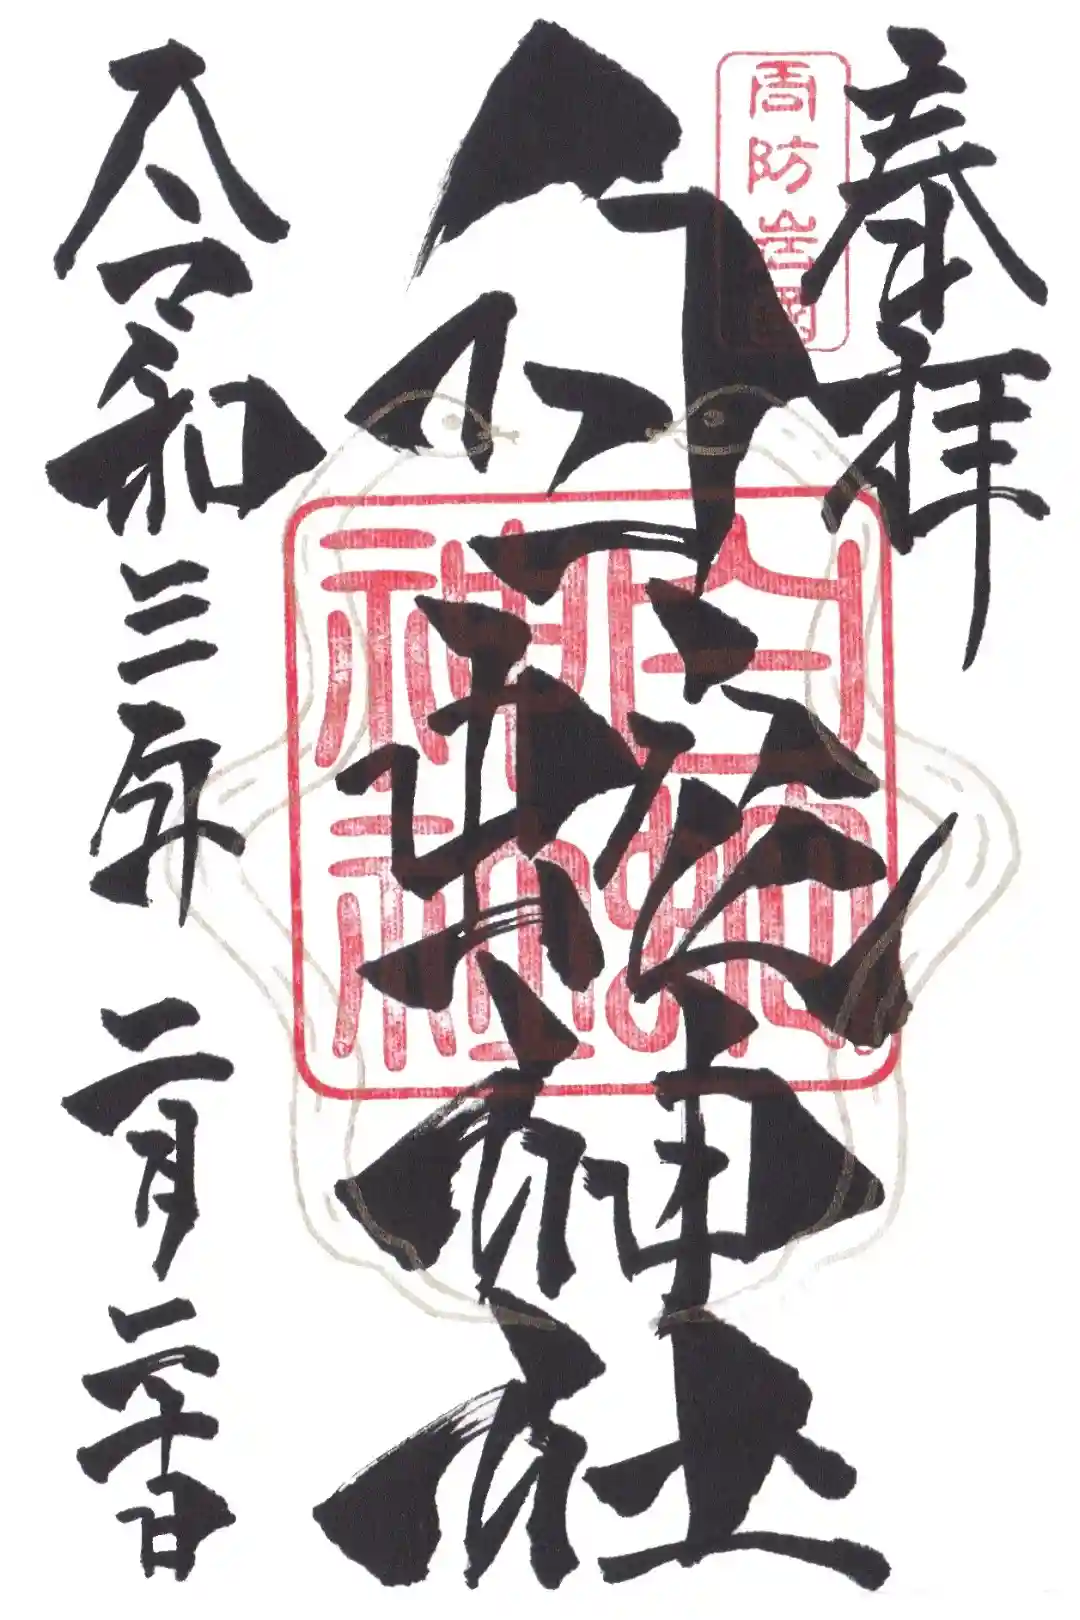 奉拝
周防岩國
白蛇神社
白蛇神社
令和三年
二月二十日